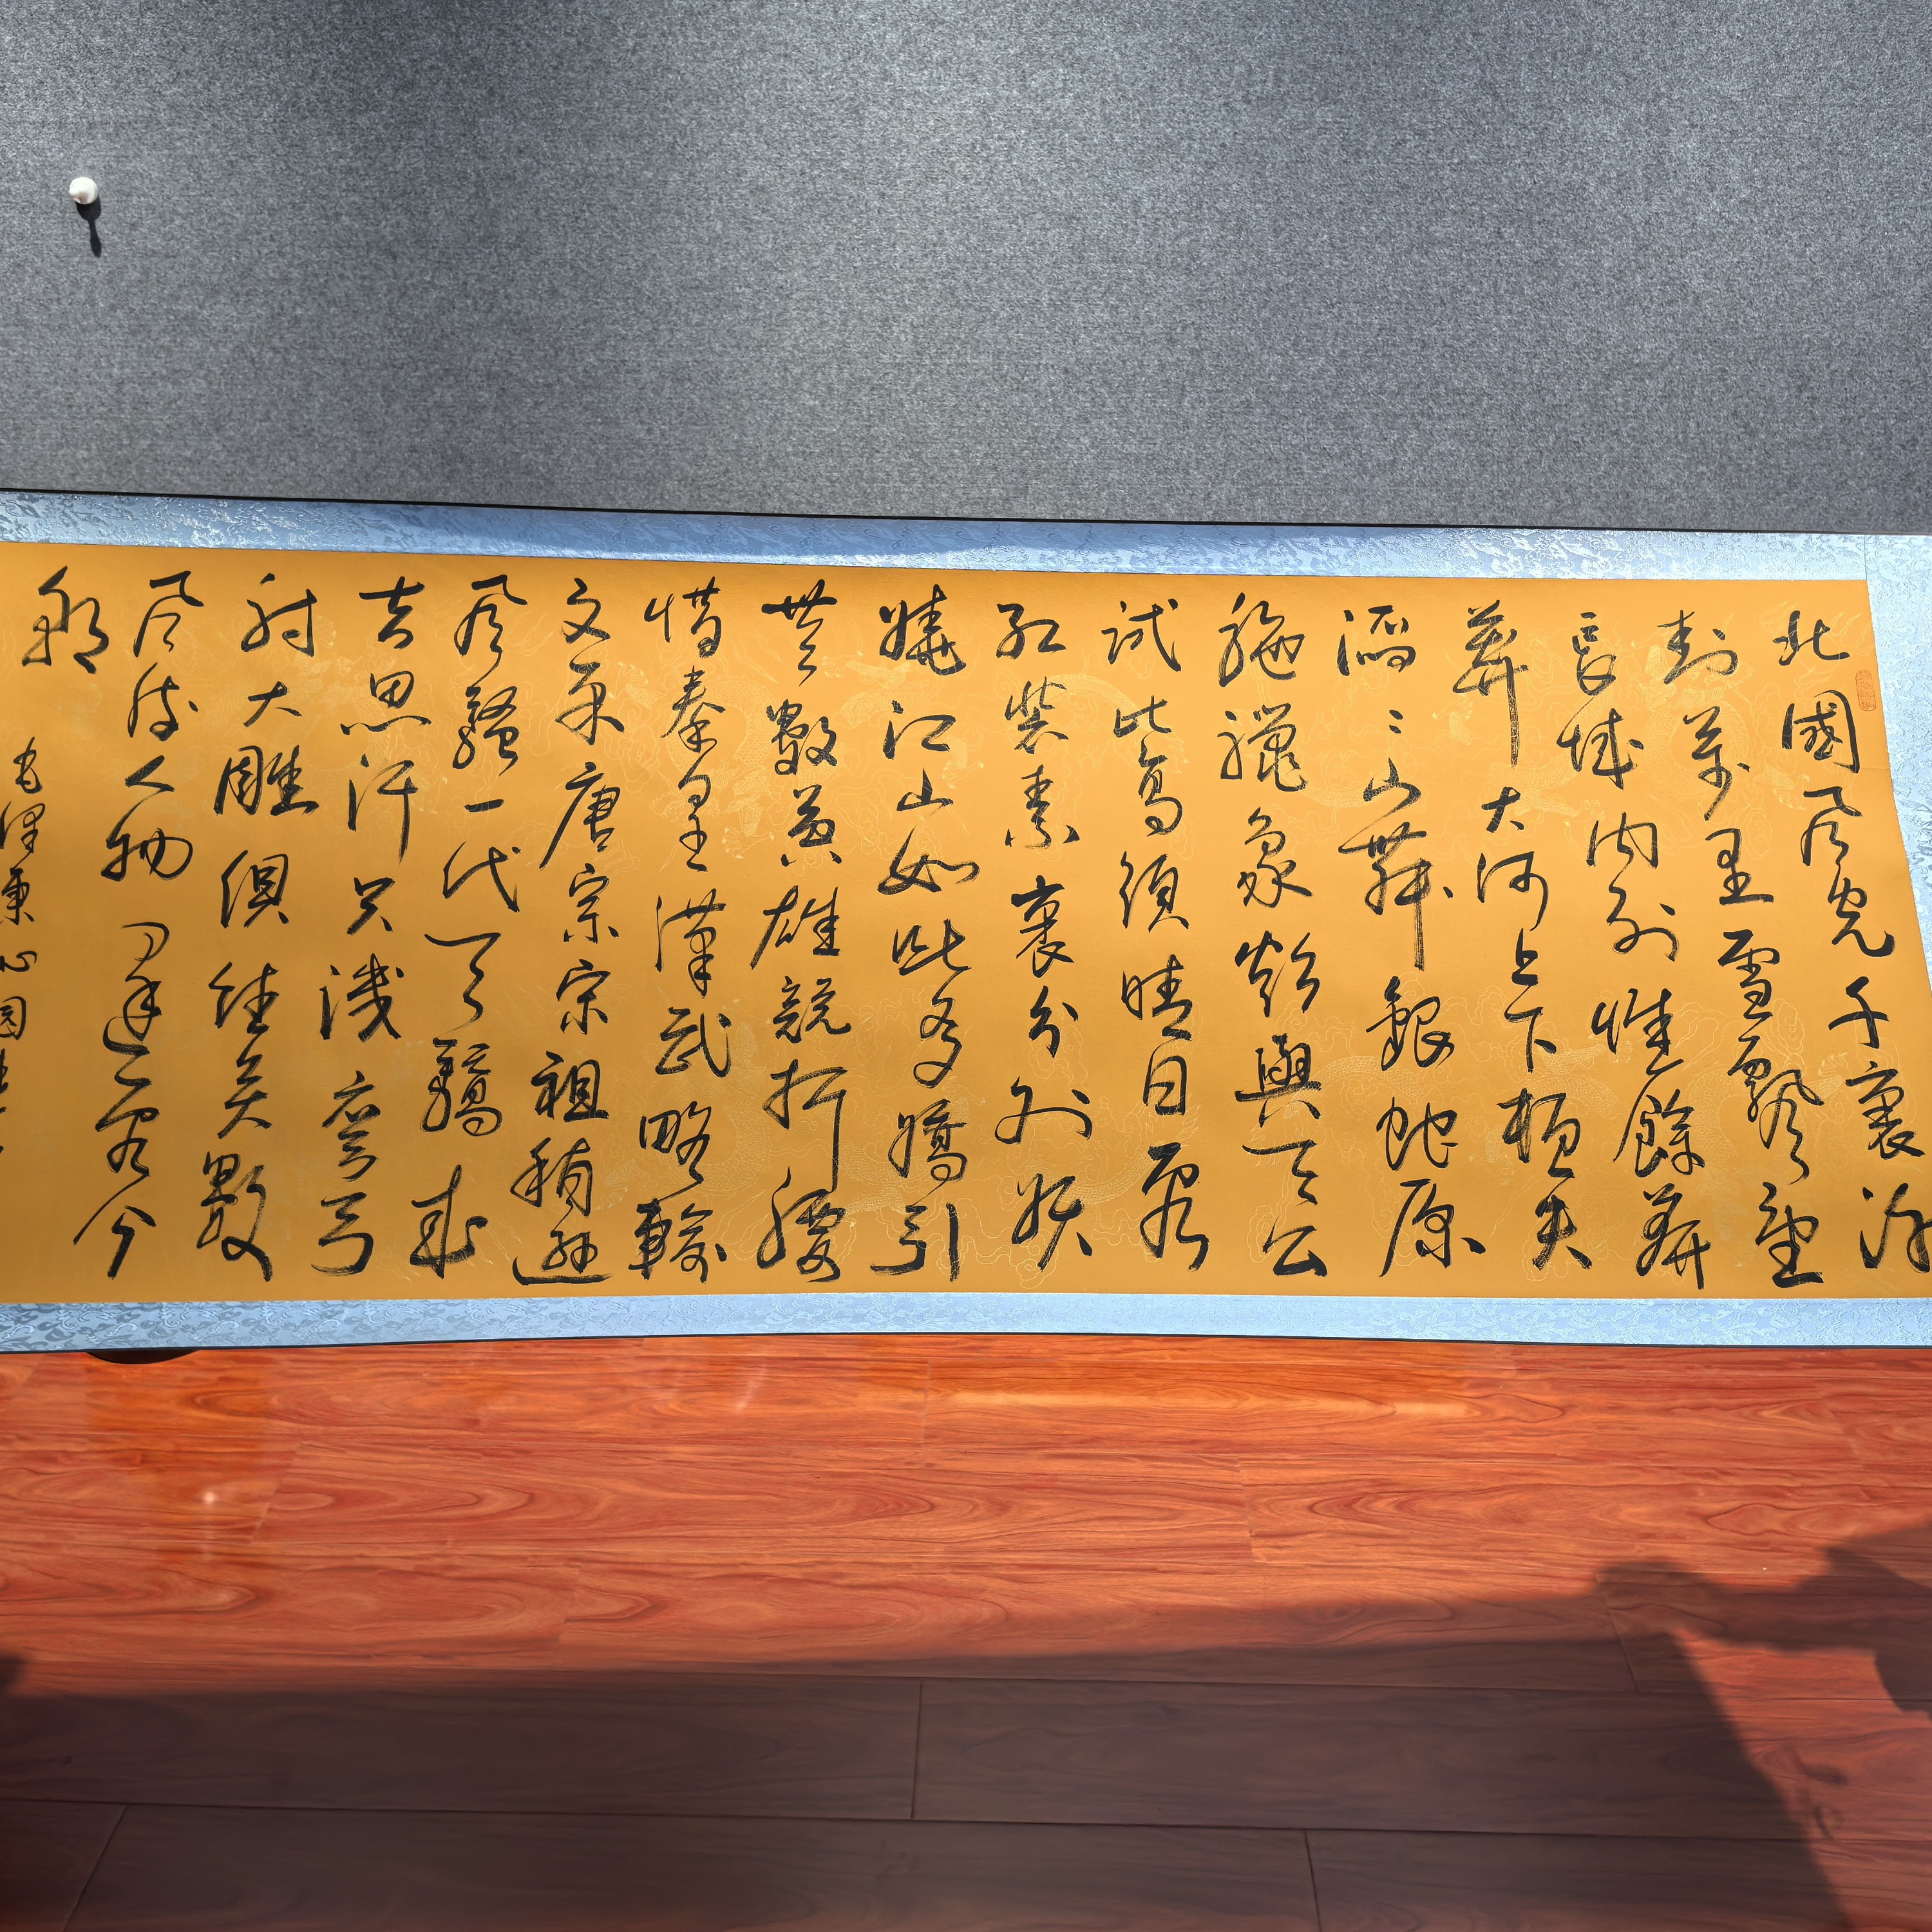 北國風光千裏冰
封萬里雪飄望
長城内外惟餘莽
莽大河上下頓失
滔〻山舞銀蛇原
馳蠟象欲與天公
試比高須晴日看
紅裝素裹分外妖
嬈江山如此多嬌引
無數英雄競折腰
惜秦皇漢武略輸
文采唐宗宋祖稍遜
風騷一代天驕成
吉思汗只識彎弓
射大雕俱往矣數
風流人物還看今
朝
毛澤東沁園春